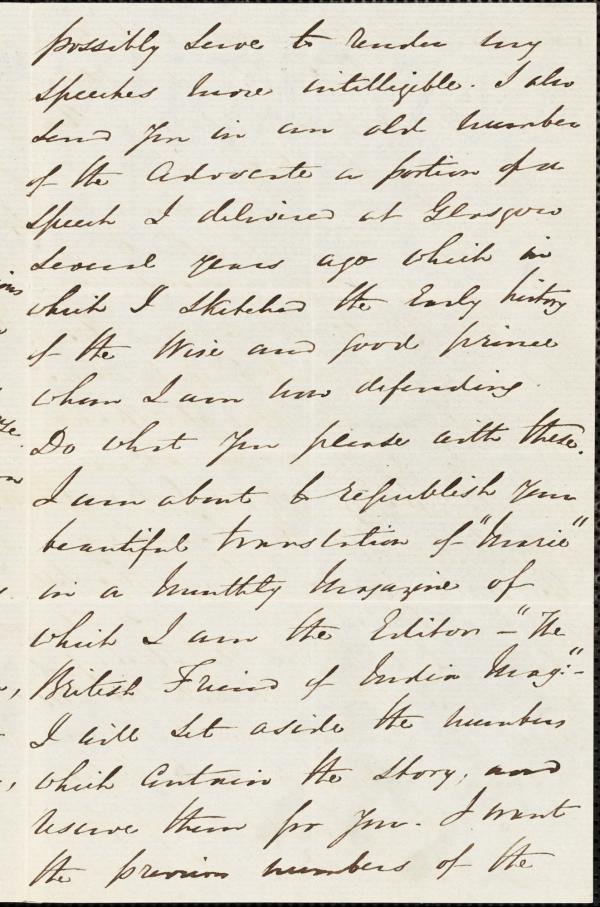 possibly serve to render my
speeches more intelligible. I also
send you in an old number
of the Advocate a portion of a
speech I delivered at Glasgow
several years ago which in
which I sketched the Early history
of the Wise and good prince
whom I am now defending.
Do what you please with these.
I am about to republish your
beautiful translation of "Marie"
in a Monthly Magazine of
which I am the Editor – "The
British Friend of India Mag:"–
I will set aside the numbers
which contain the story, and
reserve them for you. I want
the previous numbers of the